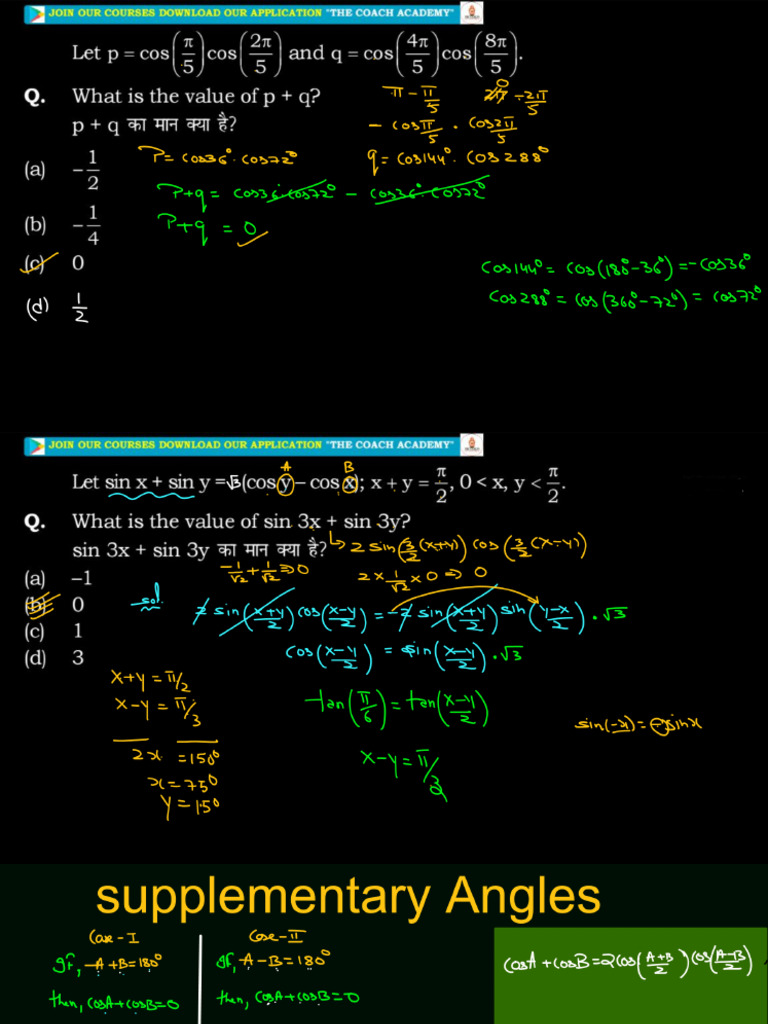 JOIN OUR COURSES DOWNLOAD OUR APPLICATION "THE COACH ACADEMY"
Let p = cos(π/5)cos(2π/5) and q = cos(4π/5)cos(8π/5).
Q. What is the value of p + q?
p + q का मान क्या है?
π - π/5
- 2π/5
- cosπ/5 · cos2π/5
P = cos36° · cos72°
q = cos144° · cos288°
(a) -1/2
P+q = cos36° cos72° - cos36° cos72°
(b) -1/4
P+q = 0
(c) 0
cos144° = cos(180°-36°) = -cos36°
(d) 1/2
cos288° = cos(360°-72°) = cos72°
JOIN OUR COURSES DOWNLOAD OUR APPLICATION "THE COACH ACADEMY"
A B
Let sin x + sin y = √3 (cos y – cos x); x + y = π/2, 0 < x, y < π/2.
Q. What is the value of sin 3x + sin 3y?
sin 3x + sin 3y का मान क्या है?
↳ 2 sin(3/2 (x+y)) cos(3/2 (x-y))
-1/√2 + 1/√2 ⇒ 0
2 × 1/√2 × 0 ⇒ 0
(a) –1
(b) 0
sol.
2 sin(x+y/2) cos(x-y/2) = -2 sin(x+y/2) sin(y-x/2) · √3
(c) 1
cos(x-y/2) = sin(x-y/2) · √3
(d) 3
x+y = π/2
x-y = π/3
tan(π/6) = tan(x-y/2)
sin(-x) = -sinx
2x = 150°
x-y = π/3
x = 75°
y = 15°
supplementary Angles
Case-I
If, A+B=180°
then, cosA+cosB=0
Case-II
If, A-B=180°
then, cosA+cosB=0
cosA+cosB=2cos(A+B/2)cos(A-B/2)